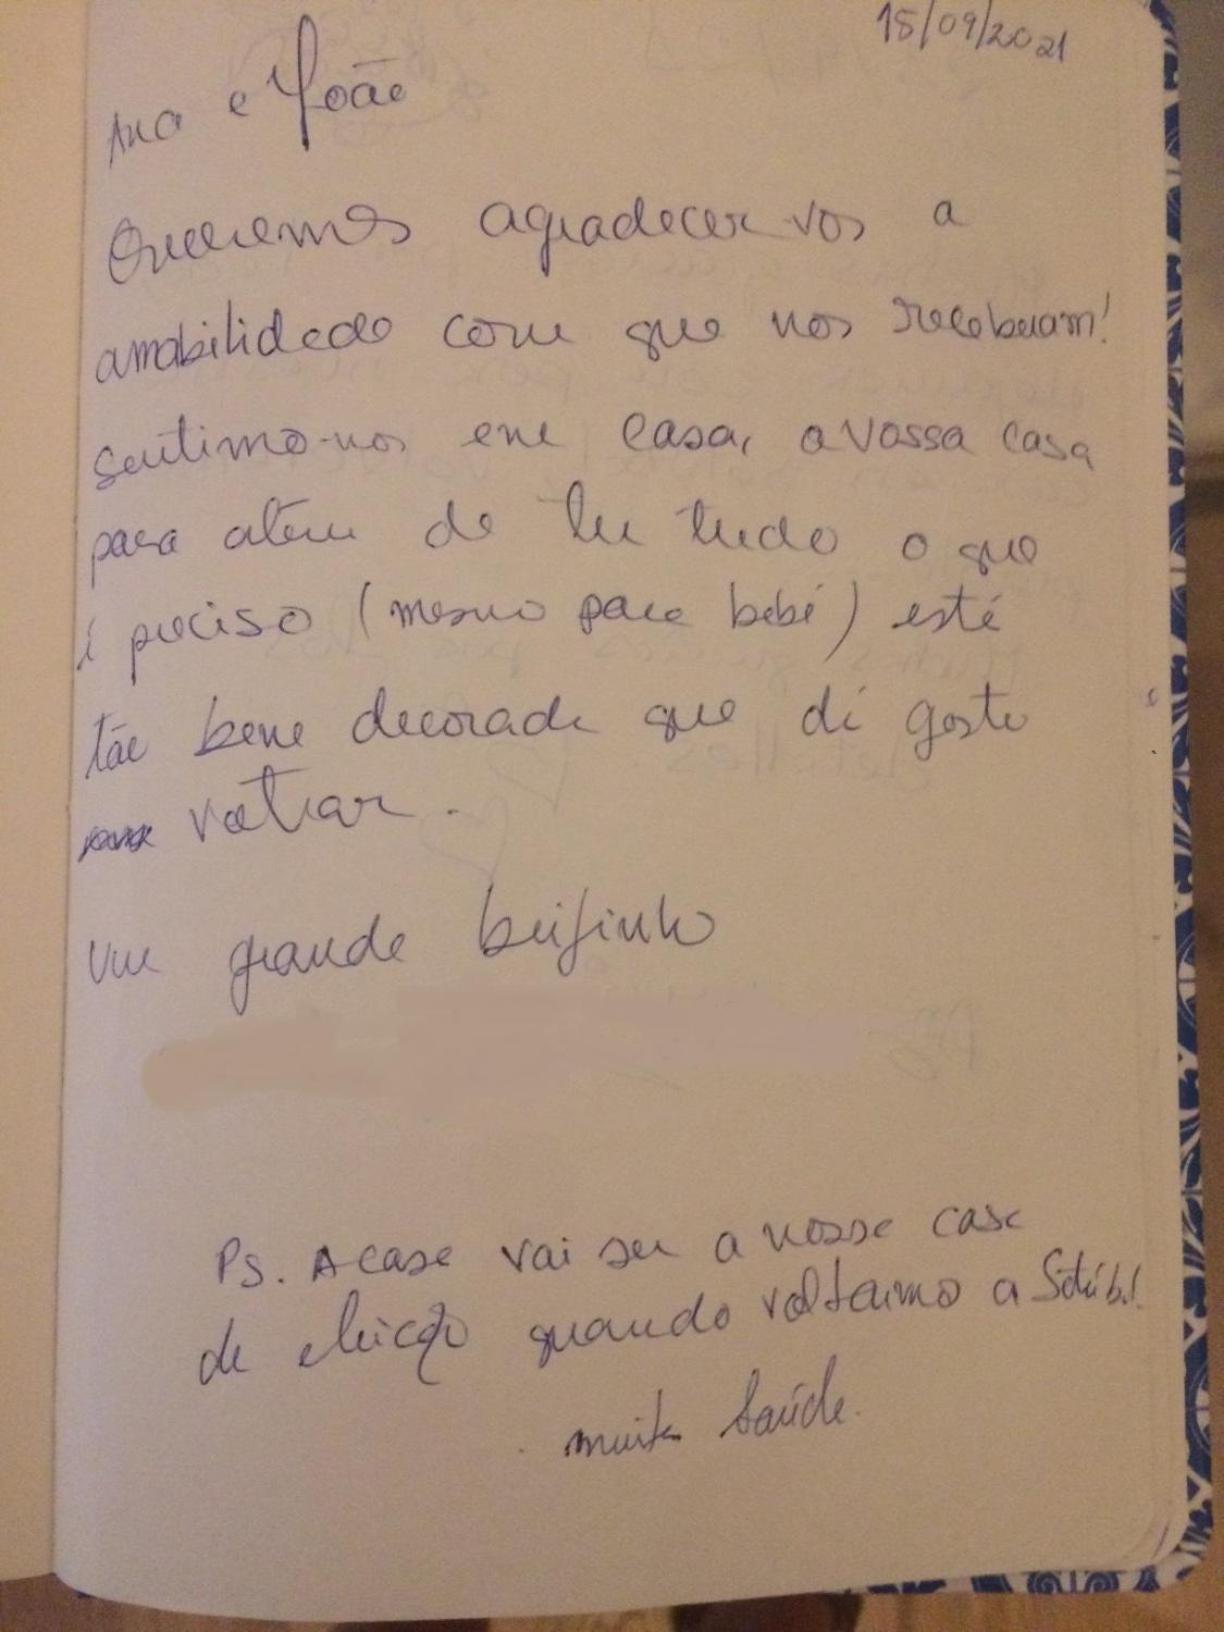 15/09/2021
Ana e João
Queremos agradecer-vos a
amabilidade com que nos receberam!
Sentimo-nos em casa, a vossa casa
para além de ter tudo o que
é preciso (mesmo para bebé) está
tão bem decorada que dá gosto
voltar.
Um grande beijinho
Ps. A casa vai ser a nossa casa
de eleição quando voltarmo a Setúbal.
muita Saúde.